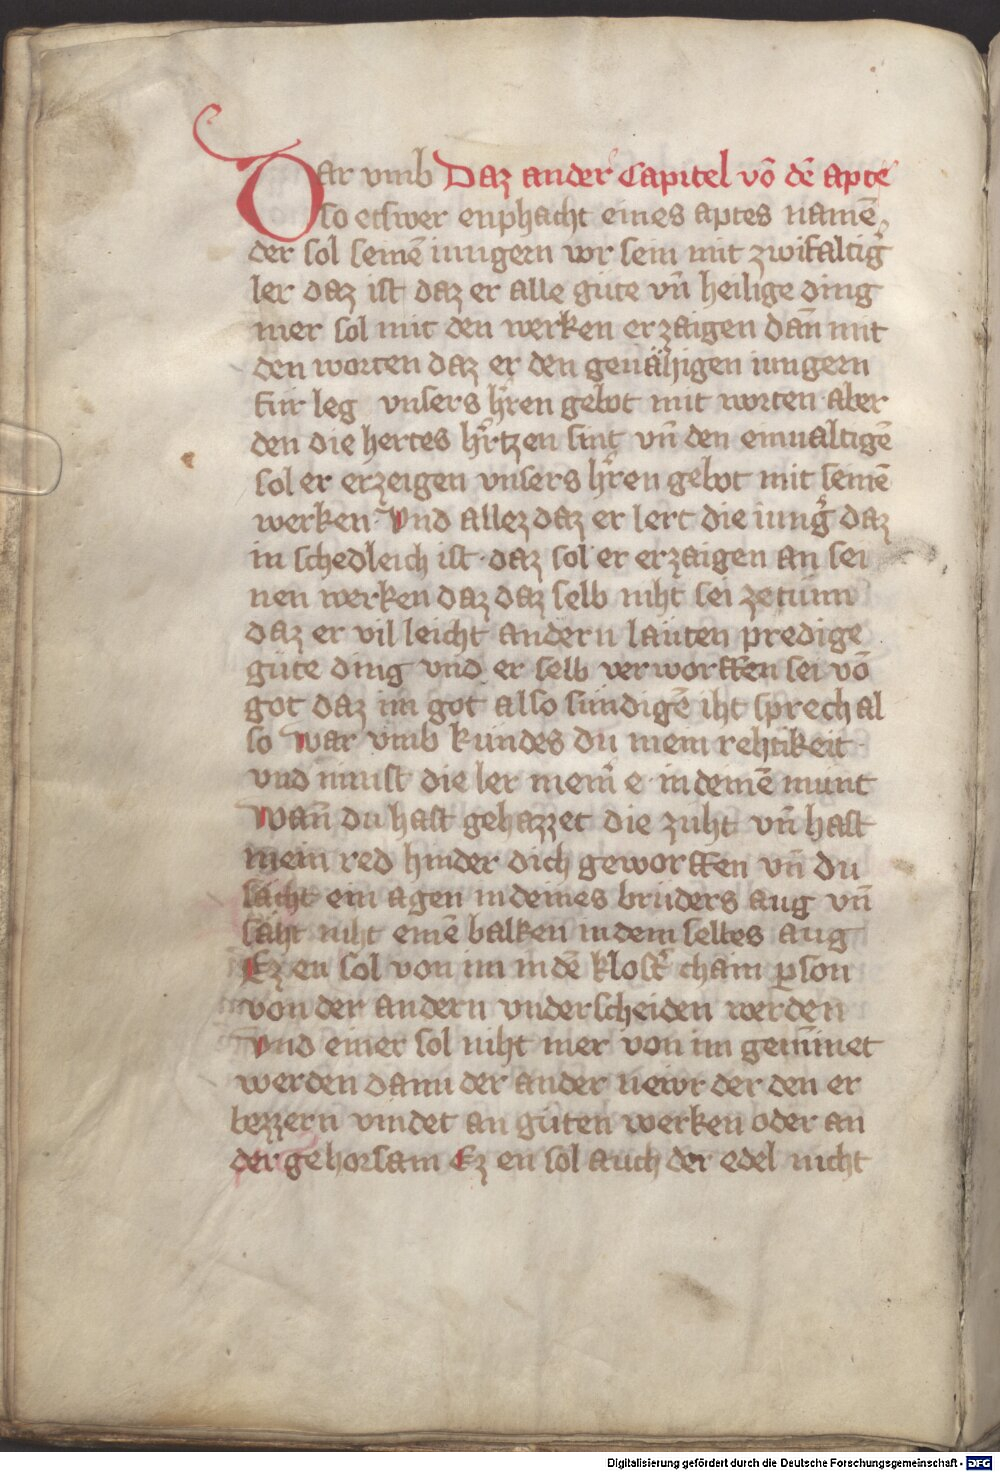 Dar vmb Daz ander Capitel võ dẽ apte
so etswer enphacht eines aptes namẽ
der sol seinẽ iungern vor sein mit zwifaltig̉
ler daz ist daz er alle gůte vñ heilige ding
mer sol mit den werken erzaigen dañ mit
den worten daz er den genähigen iungern
für leg vnsers hr̃ren gebot mit worten aber
den die hertes hr̃tzen sint vñ den einualtigẽ
sol er erzeigen vnsers hr̃ren gebot mit seinẽ
werken Vnd allez daz er lert die iung̉ daz
in schedleich ist · daz sol er erzaigen an sei
nen werken daz daz selb niht sei zetůnn
daz er vil leicht andern läuten predige
gůte ding vnd er selb verworffen sei võ
got daz im got also sündigẽ iht sprech al
so War vmb kündes du mein rehtikeit ·
vnd nimst die ler meinr̉ e · in deinẽ munt
Wañ du hast gehazzet die zuht vñ hast
mein red hinder dich geworffen vñ du
sächt ein agen in deines brůders aug vñ
säht niht einẽ balken in dem selbes aug
Ez en sol von im in dẽ klost̉ chain ꝑson
von der andern vnderscheiden werden
Vnd einer sol niht mer von im gemiñet
werden dann der ander neiwr der den er
bezzern vindet an gůten werken oder an
der gehorsam Ez en sol auch der edel nicht
Digitalisierung gefördert durch die Deutsche Forschungsgemeinschaft - DFG